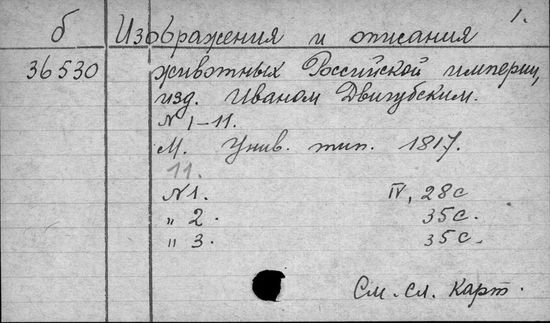 1.
б Изображения и описания
36530 животных Российской империи,
изд. Иваном Двигубским.
N 1-11.
М. Унив. тип. 1817.
11.
N1. IV, 28с
" 2. 35с.
" 3. 35с.
См. сл. карт.